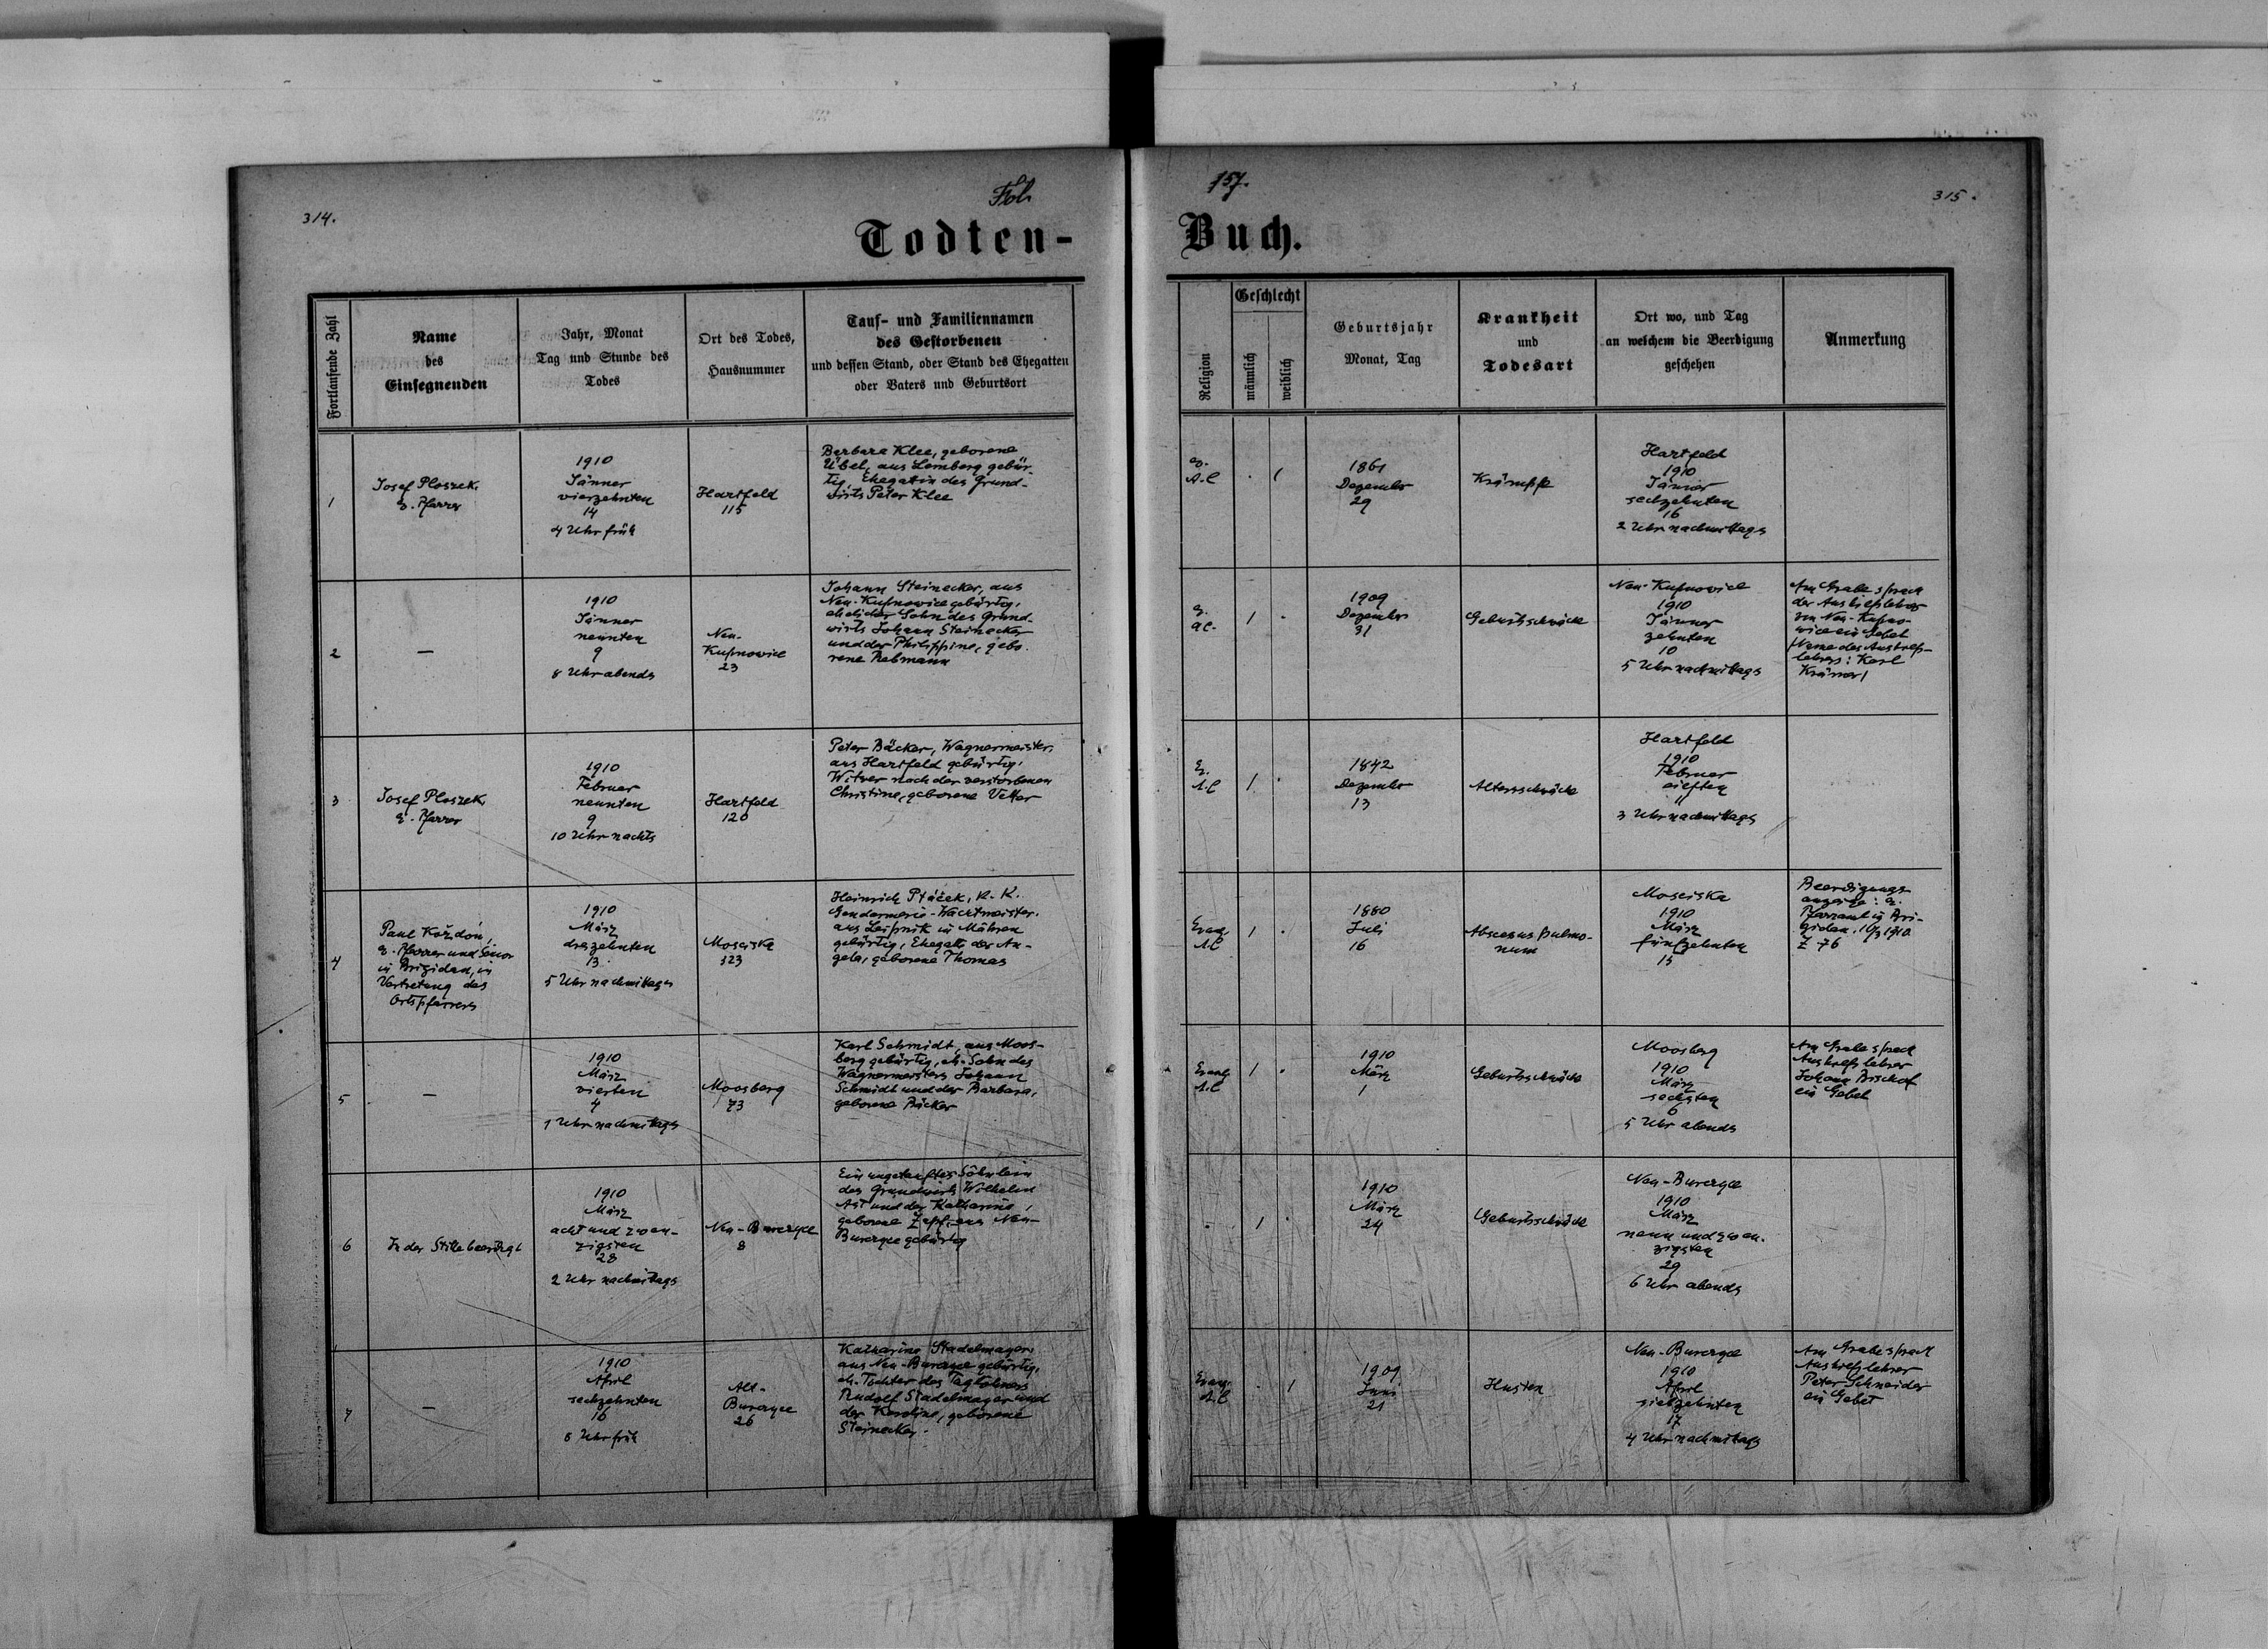 314.
Fol.
157.
315.
Todten-
Buch.
Fortlaufende Zahl
Name
des
Einsegnenden
Jahr, Monat
Tag und Stunde des
Todes
Ort des Todes,
Hausnummer
Tauf- und Familiennamen
des Gestorbenen
und dessen Stand, oder Stand des Ehegatten
oder Vaters und Geburtsort
Religion
Geschlecht
männlich
weiblich
Geburtsjahr
Monat, Tag
Krankheit
und
Todesart
Ort wo, und Tag
an welchem die Beerdigung
geschehen
Anmerkung
1
Josef Ploszek
e. Pfarrer
1910
Jänner
vierzehnten
14
4 Uhr früh
Hartfeld
115
Barbara Klee, geborene
Übel, aus Lemberg gebür-
tig, Ehegatin des Grund-
wirts Peter Klee
ev.
A.C
1
1861
Dezember
29
Krämpfe
Hartfeld
1910
Jänner
sechzehnten
16
2 Uhr nachmittags
2
—
1910
Jänner
neunten
9
8 Uhr abends
Neu-
Kupnowice
23
Johann Steinecker, aus
Neu-Kupnowice gebürtig,
ehelicher Sohn des Grund-
wirts Johann Steinecker
und der Philippine, gebo-
rene Rebmann
A.C.
1
1909
Dezember
31
Geburtsschwäche
Neu-Kupnowice
1910
Jänner
zehnten
10
5 Uhr nachmittags
Am Grabe sprach
der Aushilfslehrer
von Neu-Kupno-
wice ein Gebet
/Name des Aushilfs-
lehrers: Karl
Krämer/
3
Josef Ploszek
e. Pfarrer
1910
Februar
neunten
9
10 Uhr nachts
Hartfeld
120
Peter Bäcker, Wagnermeister,
aus Hartfeld gebürtig,
Witwer nach der verstorbenen
Christine, geborene Vetter
A.C
1
1842
Dezember
13
Altersschwäche
Hartfeld
1910
Februar
eilften
11
3 Uhr nachmittags
4
Paul Koždoń,
e. Pfarrer und Senior
in Brigidau, in
Vertretung des
Ortspfarrers
1910
März
dreizehnten
13
5 Uhr nachmittags
Mosciska
323
Heinrich Ptáček, K. K.
Gendarmerie-Wachtmeister,
aus Leipnik in Mähren
gebürtig, Ehegatte der An-
gela, geborene Thomas
Evang.
A.C
1
1880
Juli
16
Abscesus pulmo-
num
Mosciska
1910
März
fünfzehnten
15
Beerdigungs-
anzeige: e.
Pfarramt in Bri-
gidau. 16/3 1910
Z 76
5
—
1910
März
vierten
4
1 Uhr nachmittags
Moosberg
73
Karl Schmidt, aus Moos-
berg gebürtig, eh. Sohn des
Wagnermeisters Johann
Schmidt und der Barbara,
geborene Bäcker
Evang.
A.C
1
1910
März
1
Geburtsschwäche
Moosberg
1910
März
sechsten
6
5 Uhr abends
Am Grabe sprach
Aushilfslehrer
Johann Bischof
ein Gebet
6
In der Stille beerdigt
1910
März
acht und zwan-
zigsten
28
2 Uhr nachmittags
Neu-Burczyce
8
Ein ungetauftes Söhnlein
des Grundwirts Wilhelm
Ast und der Katharine,
geborene Zapf, aus Neu-
Burczyce gebürtig
1
1910
März
24
Geburtsschwäche
Neu-Burczyce
1910
März
neun und zwan-
zigsten
29
6 Uhr abends
7
—
1910
April
sechzehnten
16
8 Uhr früh
Alt-
Burczyce
26
Katharine Stadelmayer,
aus Neu-Burczyce gebürtig,
eh. Tochter des Taglöhners
Rudolf Stadelmayer und
der Karoline, geborene
Steinecker.
Evang.
A.C
1
1909
Juni
21
Husten
Neu-Burczyce
1910
April
siebzehnten
17
4 Uhr nachmittags
Am Grabe sprach
Aushilfslehrer
Peter Schneider
ein Gebet